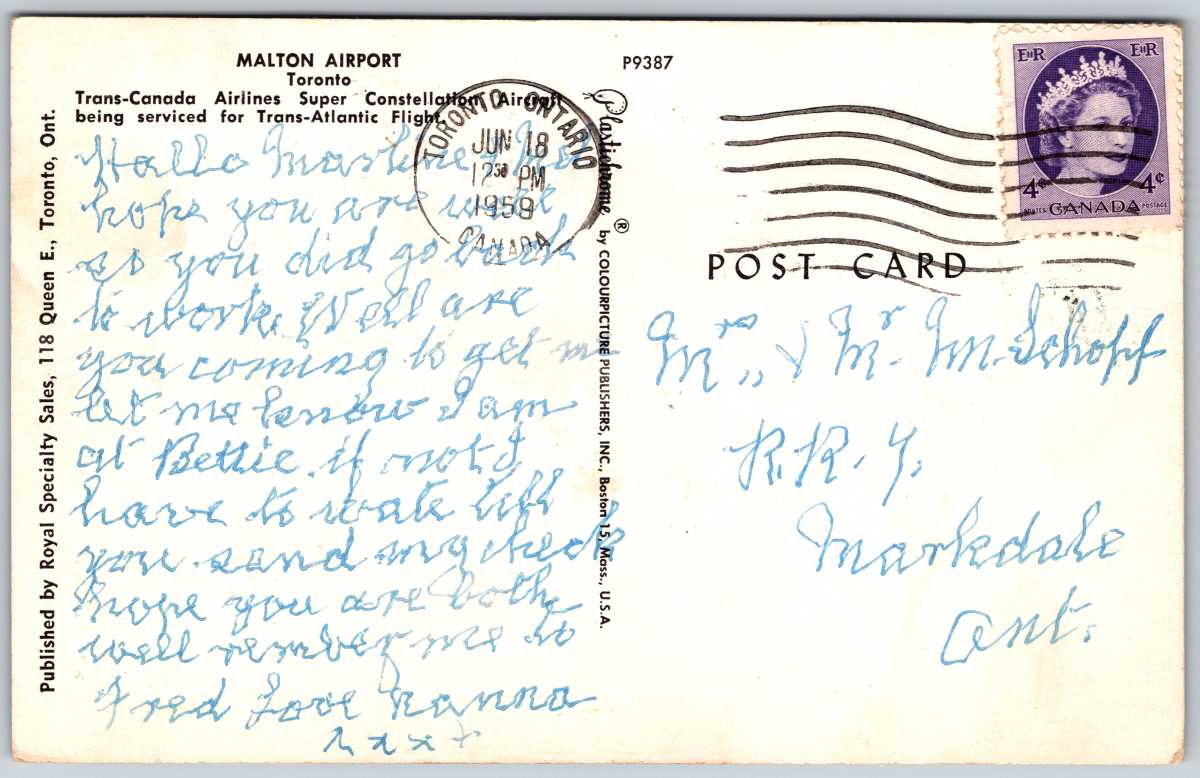 MALTON AIRPORT
Toronto
Trans-Canada Airlines Super Constellation Aircraft
being serviced for Trans-Atlantic Flight.
Hallo
hope you are well
as you did go back
to work. Well are
you coming to get me
let me know I am
at Bettie if not I
have to wate till
you send my check
hope you are both
well rember me to
Fred Love Nanna
x x x x
Published by Royal Specialty Sales, 118 Queen E., Toronto, Ont.
TORONTO ONTARIO
JUN 18
12 30 PM
1959
CANADA
Plastichrome ® by COLOURPICTURE PUBLISHERS, INC., Boston 15, Mass., U.S.A.
P9387
EIIR EIIR
4¢ 4¢
POSTES CANADA POSTAGE
POST CARD
Mrs & Mr. M. Schopf
R.R. 4.
Markdale
Ont.